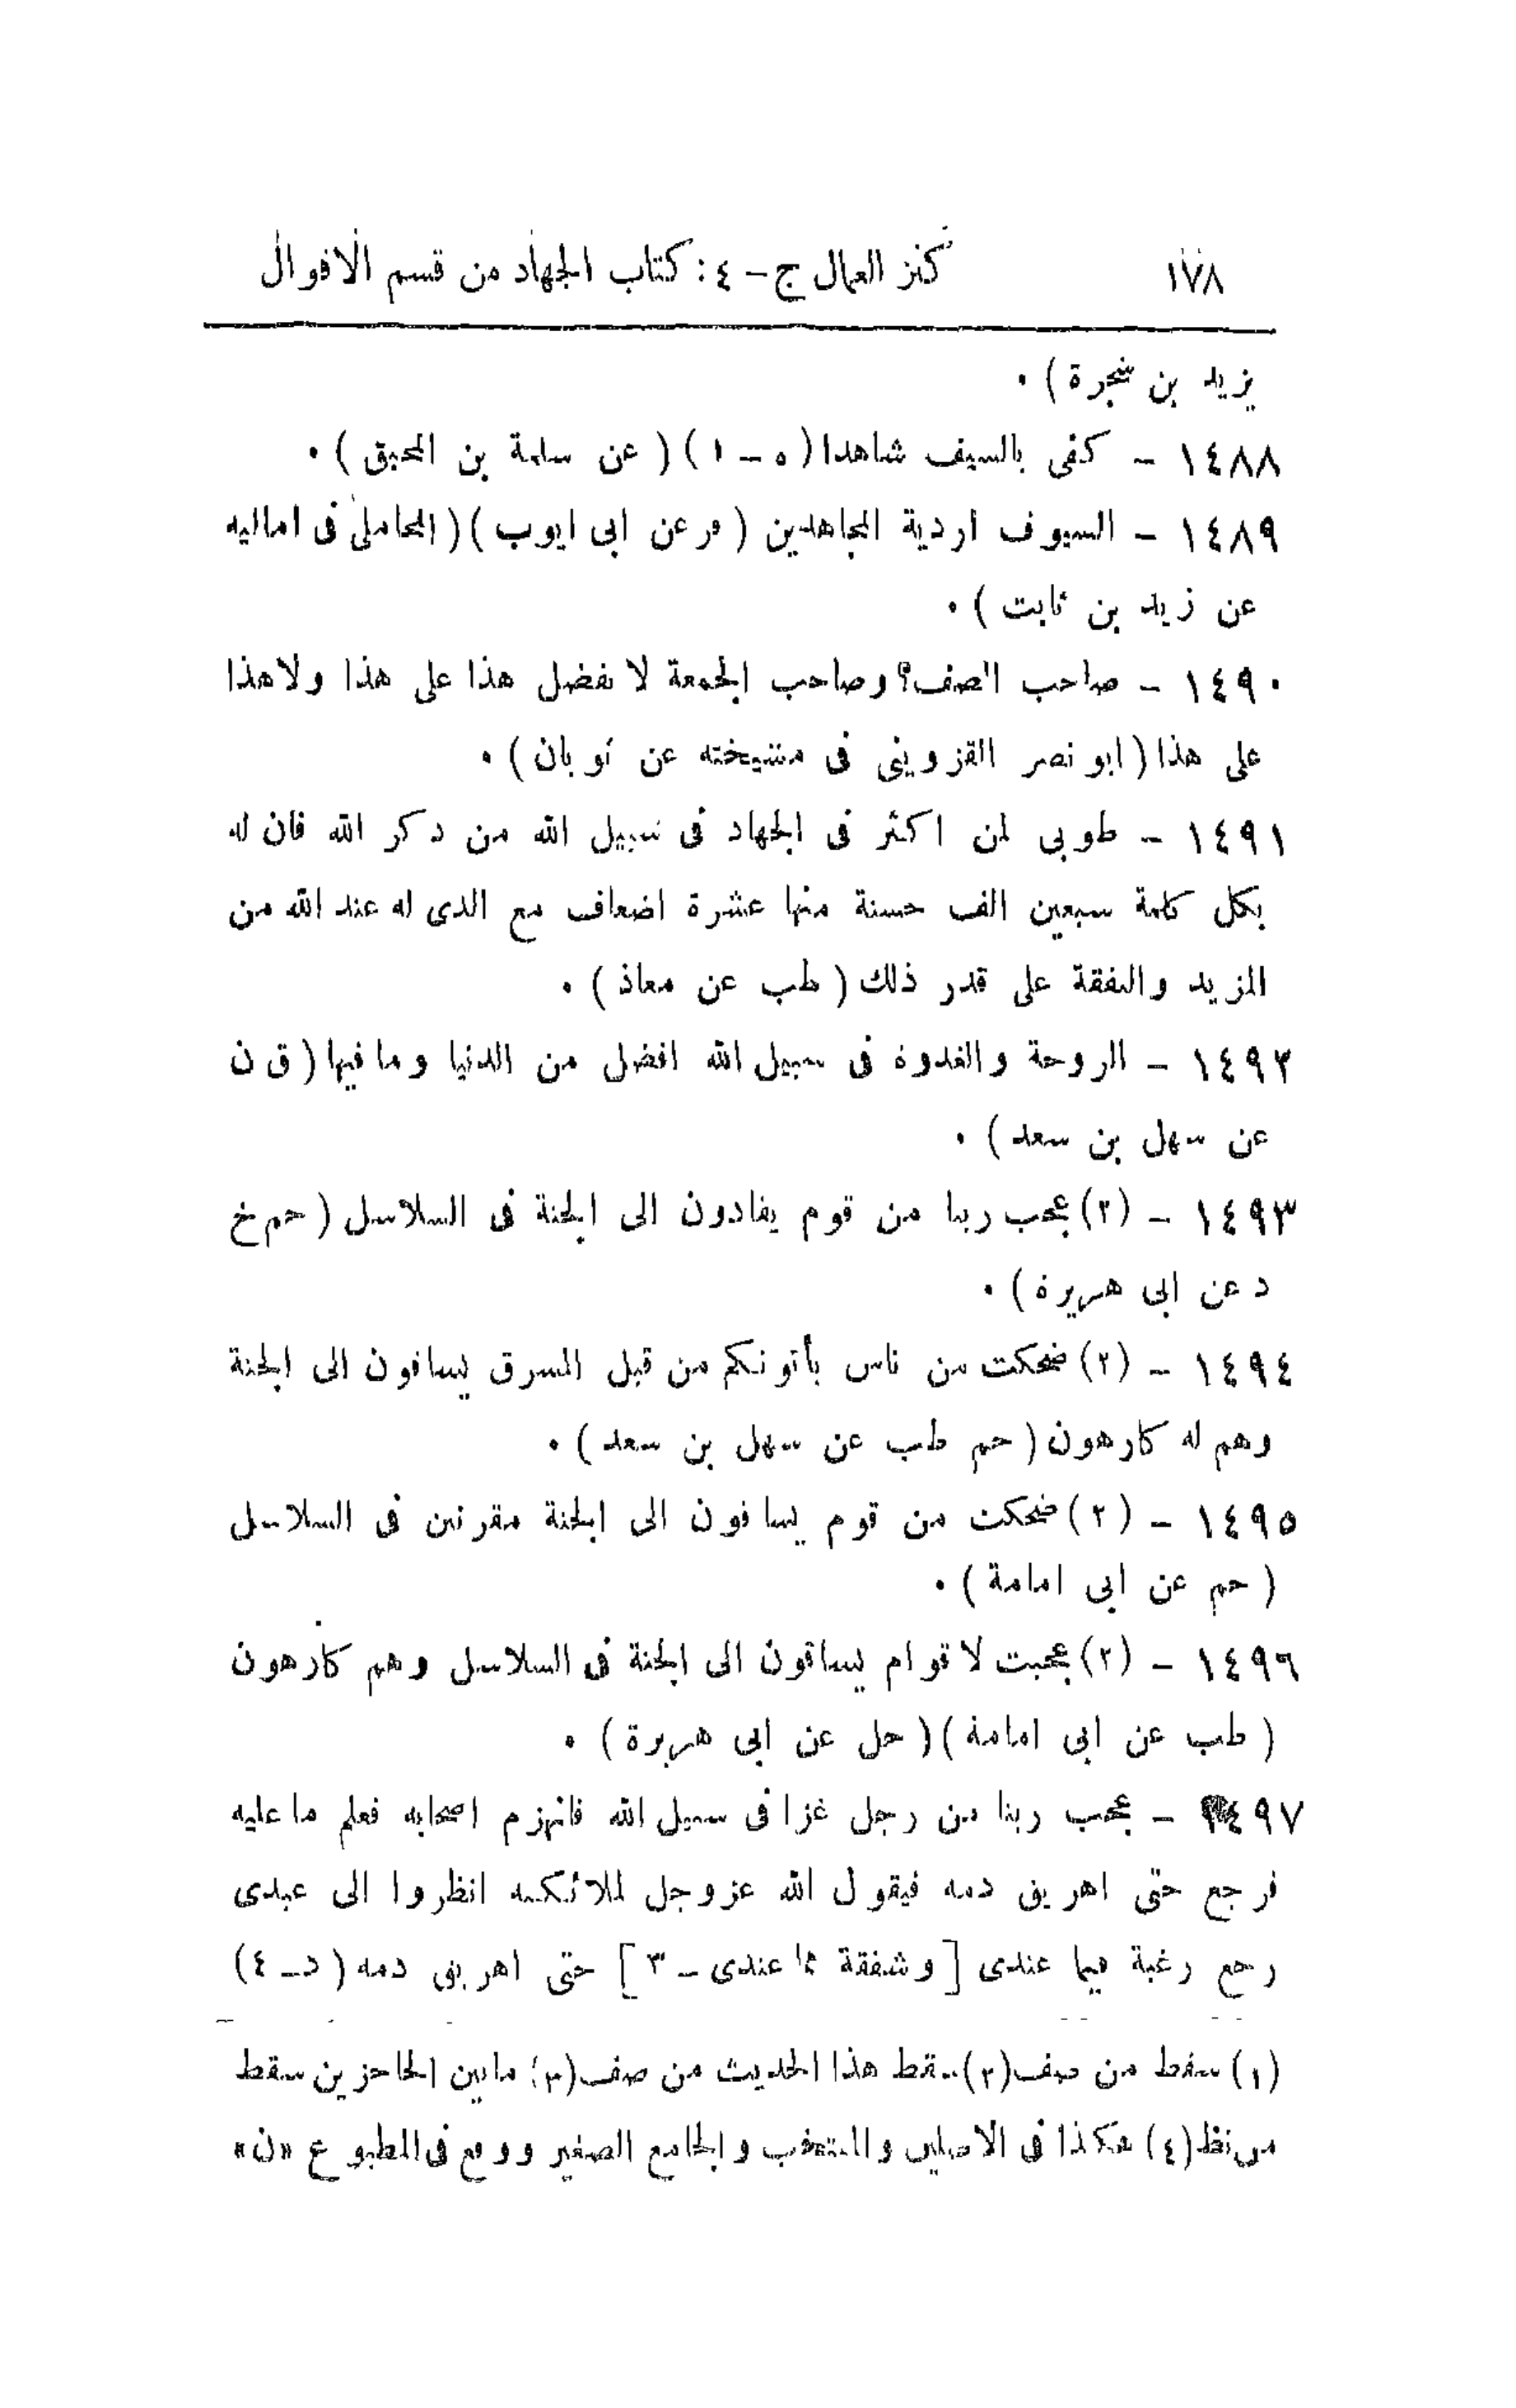 ١٧٨ كنز العمال ج - ٤ : كتاب الجهاد من قسم الاقوال
يزيد بن شجرة ) .
١٤٨٨ - كفى بالسيف شاهدا ( ه - ١ ) ( عن سلمة بن المحبق ) .
١٤٨٩ - السيوف اردية المجاهدين ( فر عن ابى ايوب ) ( المحاملى فى اماليه
عن زيد بن ثابت ) .
١٤٩٠ - صاحب الصف وصاحب الجمعة لا يفضل هذا على هذا ولا هذا
على هذا ( ابو نصر القزوينى فى مشيخته عن ثوبان ) .
١٤٩١ - طوبى لمن اكثر فى الجهاد فى سبيل الله من ذكر الله فان له
بكل كلمة سبعين الف حسنة منها عشرة اضعاف مع الذى له عند الله من
المزيد والنفقة على قدر ذلك ( طب عن معاذ ) .
١٤٩٢ - الروحة والغدوة فى سبيل الله افضل من الدنيا وما فيها ( ق ن
عن سهل بن سعد ) .
١٤٩٣ - (٢) عجب ربنا من قوم يقادون الى الجنة فى السلاسل ( حم خ
د عن ابى هريرة ) .
١٤٩٤ - (٢) ضحكت من ناس يأتونكم من قبل المشرق يساقون الى الجنة
وهم له كارهون ( حم طب عن سهل بن سعد ) .
١٤٩٥ - (٢) ضحكت من قوم يساقون الى الجنة مقرنين فى السلاسل
( حم عن ابى امامة ) .
١٤٩٦ - (٢) عجبت لاقوام يساقون الى الجنة فى السلاسل وهم كارهون
( طب عن ابى امامة ) ( حل عن ابى هريرة ) .
١٤٩٧ - عجب ربنا من رجل غزا فى سبيل الله فانهزم اصحابه فعلم ما عليه
فرجع حتى اهريق دمه فيقول الله عزوجل لملائكته انظروا الى عبدى
رجع رغبة فيما عندى [ وشفقة مما عندى - ٣ ] حتى اهريق دمه ( د - ٤ )
(١) سقط من صف (٢) سقط هذا الحديث من صف (٣) ما بين الحاجزين سقط
من نظ (٤) هكذا فى الاصلين والمنتخب والجامع الصغير ووقع فى المطبوع «ن»